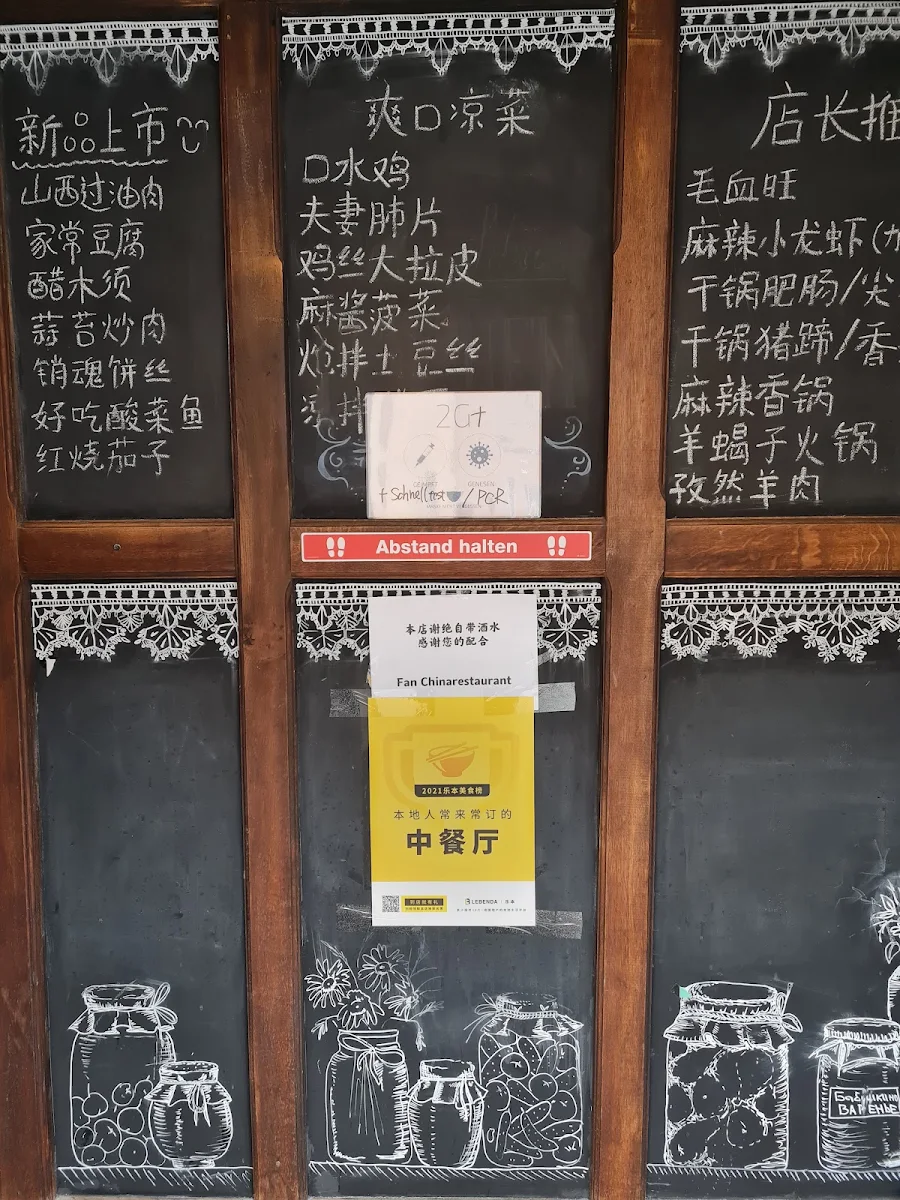 新品上市
山西过油肉
家常豆腐
醋木须
蒜苔炒肉
销魂饼丝
好吃酸菜鱼
红烧茄子
爽口凉菜
口水鸡
夫妻肺片
鸡丝大拉皮
麻酱菠菜
炝拌土豆丝
凉拌
2G+
GEIMPFT
GENESEN
+ Schnelltest / PCR
Abstand halten
本店谢绝自带酒水
感谢您的配合
Fan Chinarestaurant
2021乐本美食榜
本地人常来常订的
中餐厅
LEBENDA 乐本
店长推
毛血旺
麻辣小犬虾(
干锅肥肠/尖
干锅猪蹄/香
麻辣香锅
羊蝎子火锅
孜然羊肉
ВАРЕНЬЕ